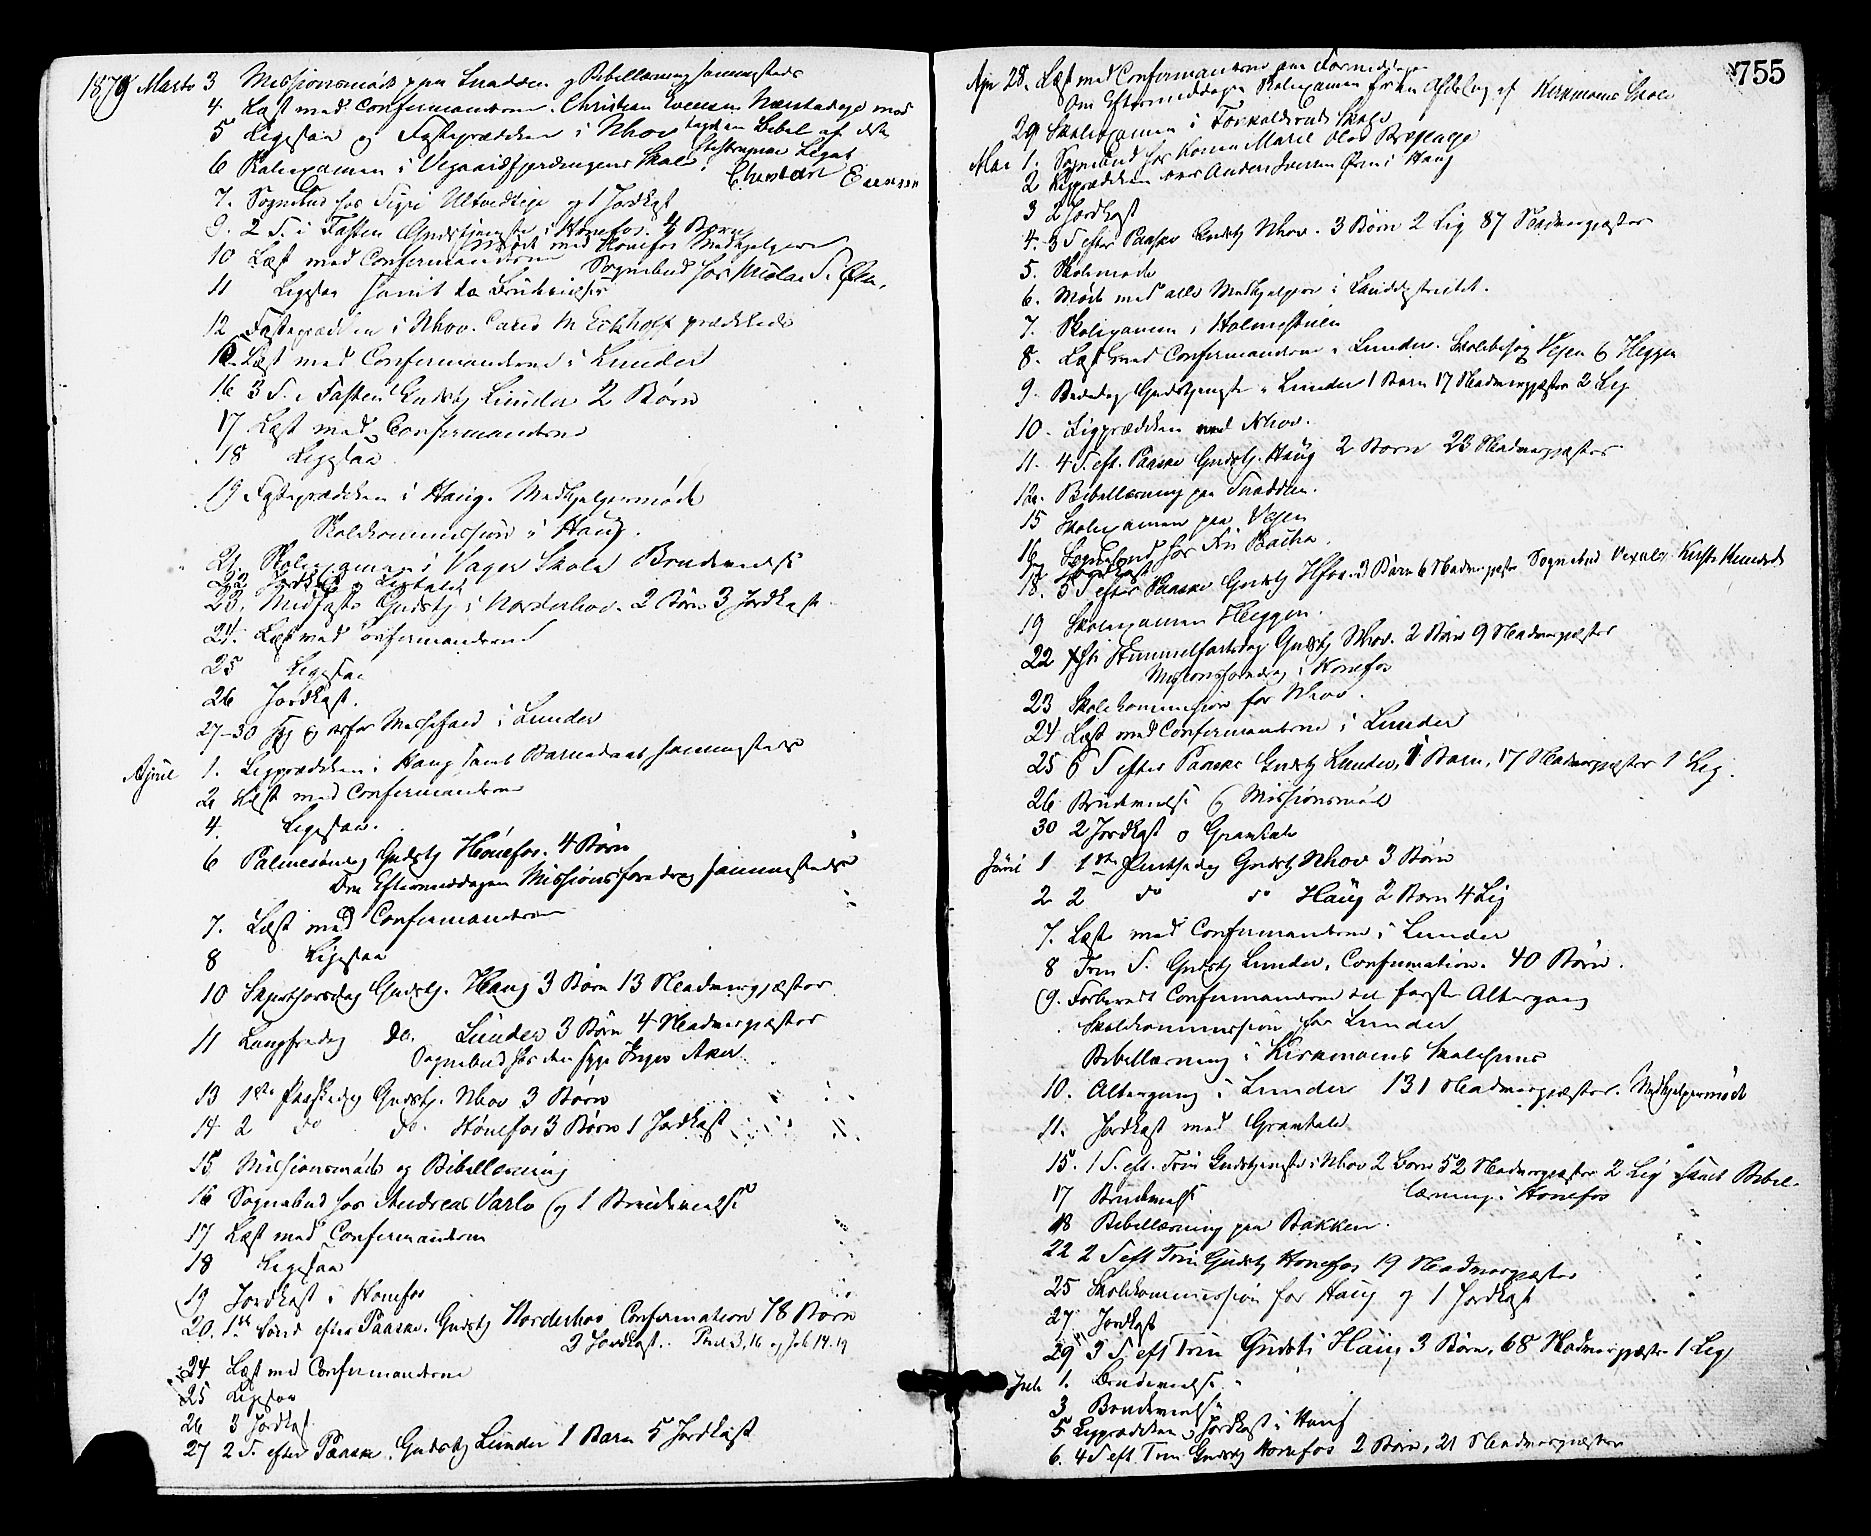 755
1879 Marts 3 Missionsmøde paa Snadden og Bibellæsning sammesteds
4. Læst med Confirmanderne. Christian Evensen Næsstadeje mod
5 Ligesaa og Fasteprædiken i Nhov tagit en Bibel af det
6 Skolexamen i Vegaardsfjerdingens Skole. Legat
Christian Evensen
7. Sognebud hos Sigri Ultvedteje og 1 Jordkast
9. 2 S. i Fasten Gudstjeneste i Hønefos. 4 Børn
Møde med Hønefos Medhjelpere
10 Læst med Confirmanderne Sognebud hos
11 Ligesaa samt to Brudevielser
12 Fasteprædiken i Nhov. Cand M Eckhoff prædikede
Læst med Confirmanderne i Lunder
16 3 S. i Fasten Gudstj Lunder 2 Børn
17 Læst med Confirmanderne
18 Ligesaa
19 Fasteprædiken i Haug. Medhjelpermøde
Skolekommission i Haug.
21. Skolexamen i Vager Skole Brudevielse
22 Jordkast og Ligtale
23. Midfaste Gudstj i Norderhov. 2 Børn 3 Jordkast
24. Læst med Confirmanderne
25 Ligesaa
26 Jordkast.
27-30 Syg og derfor Messefald i Lunder
April 1. Ligprædiken i Haug samt Barnedaab sammesteds
2 Læst med Confirmanderne
4. Ligesaa.
6 Palmesøndag Gudstj Hønefos. 4 Børn
Om Eftermiddagen Missionsforedrag sammesteds
7. Læst med Confirmanderne
8 Ligesaa
10 Skjærthorsdag Gudstj. Haug 3 Børn 13 Nadvergjæster
11 Langfredag Do. Lunder 3 Børn 4 Nadvergjæster
Sognebud hos den syge Inger Aker.
13 1ste Paaskedag Gudstj. Nhov 3 Børn
14 2 do do. Hønefos 3 Børn 1 Jordkast
15 Missionsmøde og Bibellæsning
16 Sognebud hos Andreas Varlo og 1 Brudevielse
17 Læst med Confirmanderne
18 Ligesaa
19 Jordkast i Hønefos
20. 1ste Sønd efter Paaske. Gudstj Norderhov Confirmation 78 Børn
3 Jordkast. 3,16 og Joh 14.19
24 Læst med Confirmanderne
25 Ligesaa
26 3 Jordkast
27 2 S. efter Paaske. Gudstj Lunder 1 Barn 5 Jordkast
Apr 28. Læst med Confirmanderne om Formiddagen
Om Eftermiddagen Skolexamen første Afdeling af Kirkmoens Skole
29 Skolexamen i Skole
Mai 1. Sognebud hos Konen Marie Olsd
2 Ligprædiken over Anders Iversen i Haug
3 2 Jordkast
4. 3 S efter Paaske Gudstj Nhov. 3 Børn 2 Lig 87 Nadvergjæster
5. Skolemøde
6. Møde med alle Medhjelpere i Landdistriktet.
7. Skolexamen i Holmestuen
8. Læst med Confirmanderne i Lunder. Skolebesøg Vejen og Heggen
9. Bededag Gudstjeneste i Lunder 1 Barn 17 Nadvergjæster 2 Lig
10. Ligprædiken ved Nhov.
11. 4 S. eft. Paaske Gudstj. Haug 2 Børn 23 Nadvergjæster
12. Bibellæsning paa Snadden.
15 Skolexamen paa Vejen
16 Sognebud hos
17 Jordkast
18. 5 S efter Paaske Gudstj Hfos. 3 Børn 6 Nadvergjæster Sognebud
19 Skolexamen Heggen.
22 Chr Himmelfartsdag Gudstj Nhov. 2 Børn 9 Nadvergjæster
Missionsforedrag i Hønefos
23 Skolekommission for Nhov.
24 Læst med Confirmanderne i Lunder
25 6 S efter Paaske Gudstj Lunder, 1 Barn, 17 Nadvergjæster 1 Lig.
26 Brudevielse og Missionsmøde
30 2 Jordkast og Gravtale
Juni 1 1ste Pintsedag Gudstj Nhov 3 Børn
2 2 do do Haug 2 Børn 4 Lig
7. Læste med Confirmanderne i Lunder
8 Trin S. Gudstj Lunder. Confirmation. 40 Børn.
9. Forberedt Confirmanderne til første Altergang
Skolekommission for Lunder
Bibellæsning i Kirkmoens Skolehuus
10. Altergang i Lunder 131 Nadvergjæster. Medhjelpermøde
11. Jordkast med Gravtale
15. 1 S. eft. Trin Gudstjeneste i Nhov 2 Børn 52 Nadvergjæster 2 Lig samt Bibel-
læsning i Hønefos
17 Brudevielse
18 Bibellæsning paa Bakken.
22 2 S eft Trin Gudstj Hønefos 19 Nadvergjæster
25 Skolekommission for Haug og 1 Jordkast
27. Jordkast
29 3 S eft Trin Gudstj Haug 3 Børn, 68 Nadvergjæster 1 Lig
Juli 1. Brudevielse
3 Brudevielse
5 Ligprædiken og Jordkast i Haug
6. 4 S eft. Trin Gudstj Hønefos 2 Børn, 21 Nadvergjæster